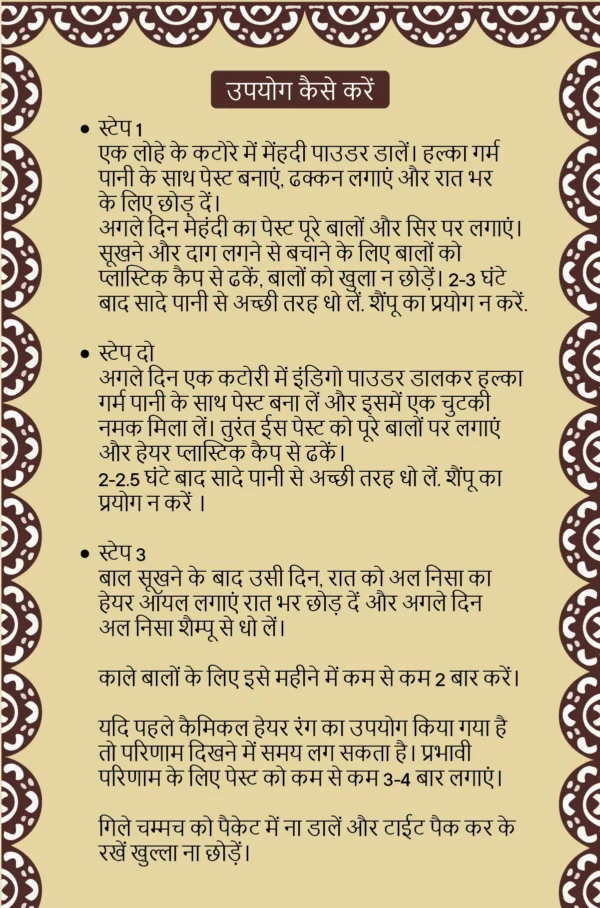 उपयोग कैसे करें
• स्टेप 1
एक लोहे के कटोरे में मेंहदी पाउडर डालें। हल्का गर्म
पानी के साथ पेस्ट बनाएं, ढक्कन लगाएं और रात भर
के लिए छोड़ दें।
अगले दिन मेहंदी का पेस्ट पूरे बालों और सिर पर लगाएं।
सूखने और दाग लगने से बचाने के लिए बालों को
प्लास्टिक कैप से ढकें, बालों को खुला न छोड़ें। 2-3 घंटे
बाद सादे पानी से अच्छी तरह धो लें. शैंपू का प्रयोग न करें.
• स्टेप दो
अगले दिन एक कटोरी में इंडिगो पाउडर डालकर हल्का
गर्म पानी के साथ पेस्ट बना लें और इसमें एक चुटकी
नमक मिला लें। तुरंत ईस पेस्ट को पूरे बालों पर लगाएं
और हेयर प्लास्टिक कैप से ढकें।
2-2.5 घंटे बाद सादे पानी से अच्छी तरह धो लें. शैंपू का
प्रयोग न करें ।
• स्टेप 3
बाल सूखने के बाद उसी दिन, रात को अल निसा का
हेयर ऑयल लगाएं रात भर छोड़ दें और अगले दिन
अल निसा शैम्पू से धो लें।
काले बालों के लिए इसे महीने में कम से कम 2 बार करें।
यदि पहले कैमिकल हेयर रंग का उपयोग किया गया है
तो परिणाम दिखने में समय लग सकता है। प्रभावी
परिणाम के लिए पेस्ट को कम से कम 3-4 बार लगाएं।
गिले चम्मच को पैकेट में ना डालें और टाईट पैक कर के
रखें खुल्ला ना छोड़ें।